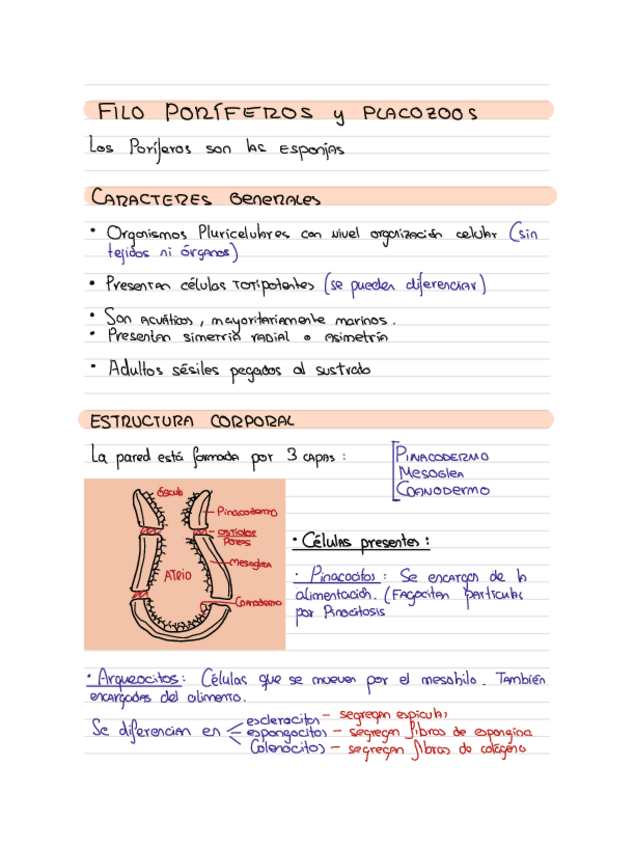 FILO PORÍFEROS y PLACOZOOS
Los Poríferos son las esponjas
CARACTERES GENERALES
• Organismos Pluricelulares con nivel organización celular (sin
tejidos ni órganos)
• Presentan células totipotentes (se pueden diferenciar)
• Son acuáticos, mayoritariamente marinos.
• Presentan simetría radial o asimetría
• Adultos sésiles pegados al sustrado
ESTRUCTURA CORPORAL
La pared está formada por 3 capas:
PINACODERMO
MESOGLEA
COANODERMO
ósculo
Pinacodermo
ostiolos
Poros
Mesoglea
Atrio
Coanodermo
• Células presentes:
· Pinacocitos: Se encargan de la
alimentación. (Fagocitan partículas
por Pinocitosis
· Arqueocitos: Células que se mueven por el mesohilo. También
encargadas del alimento.
Se diferencian en
esclerocitos - segregan espículas
espongocitos - segregan fibras de espongina
Colenocitos - segregan fibras de colágeno